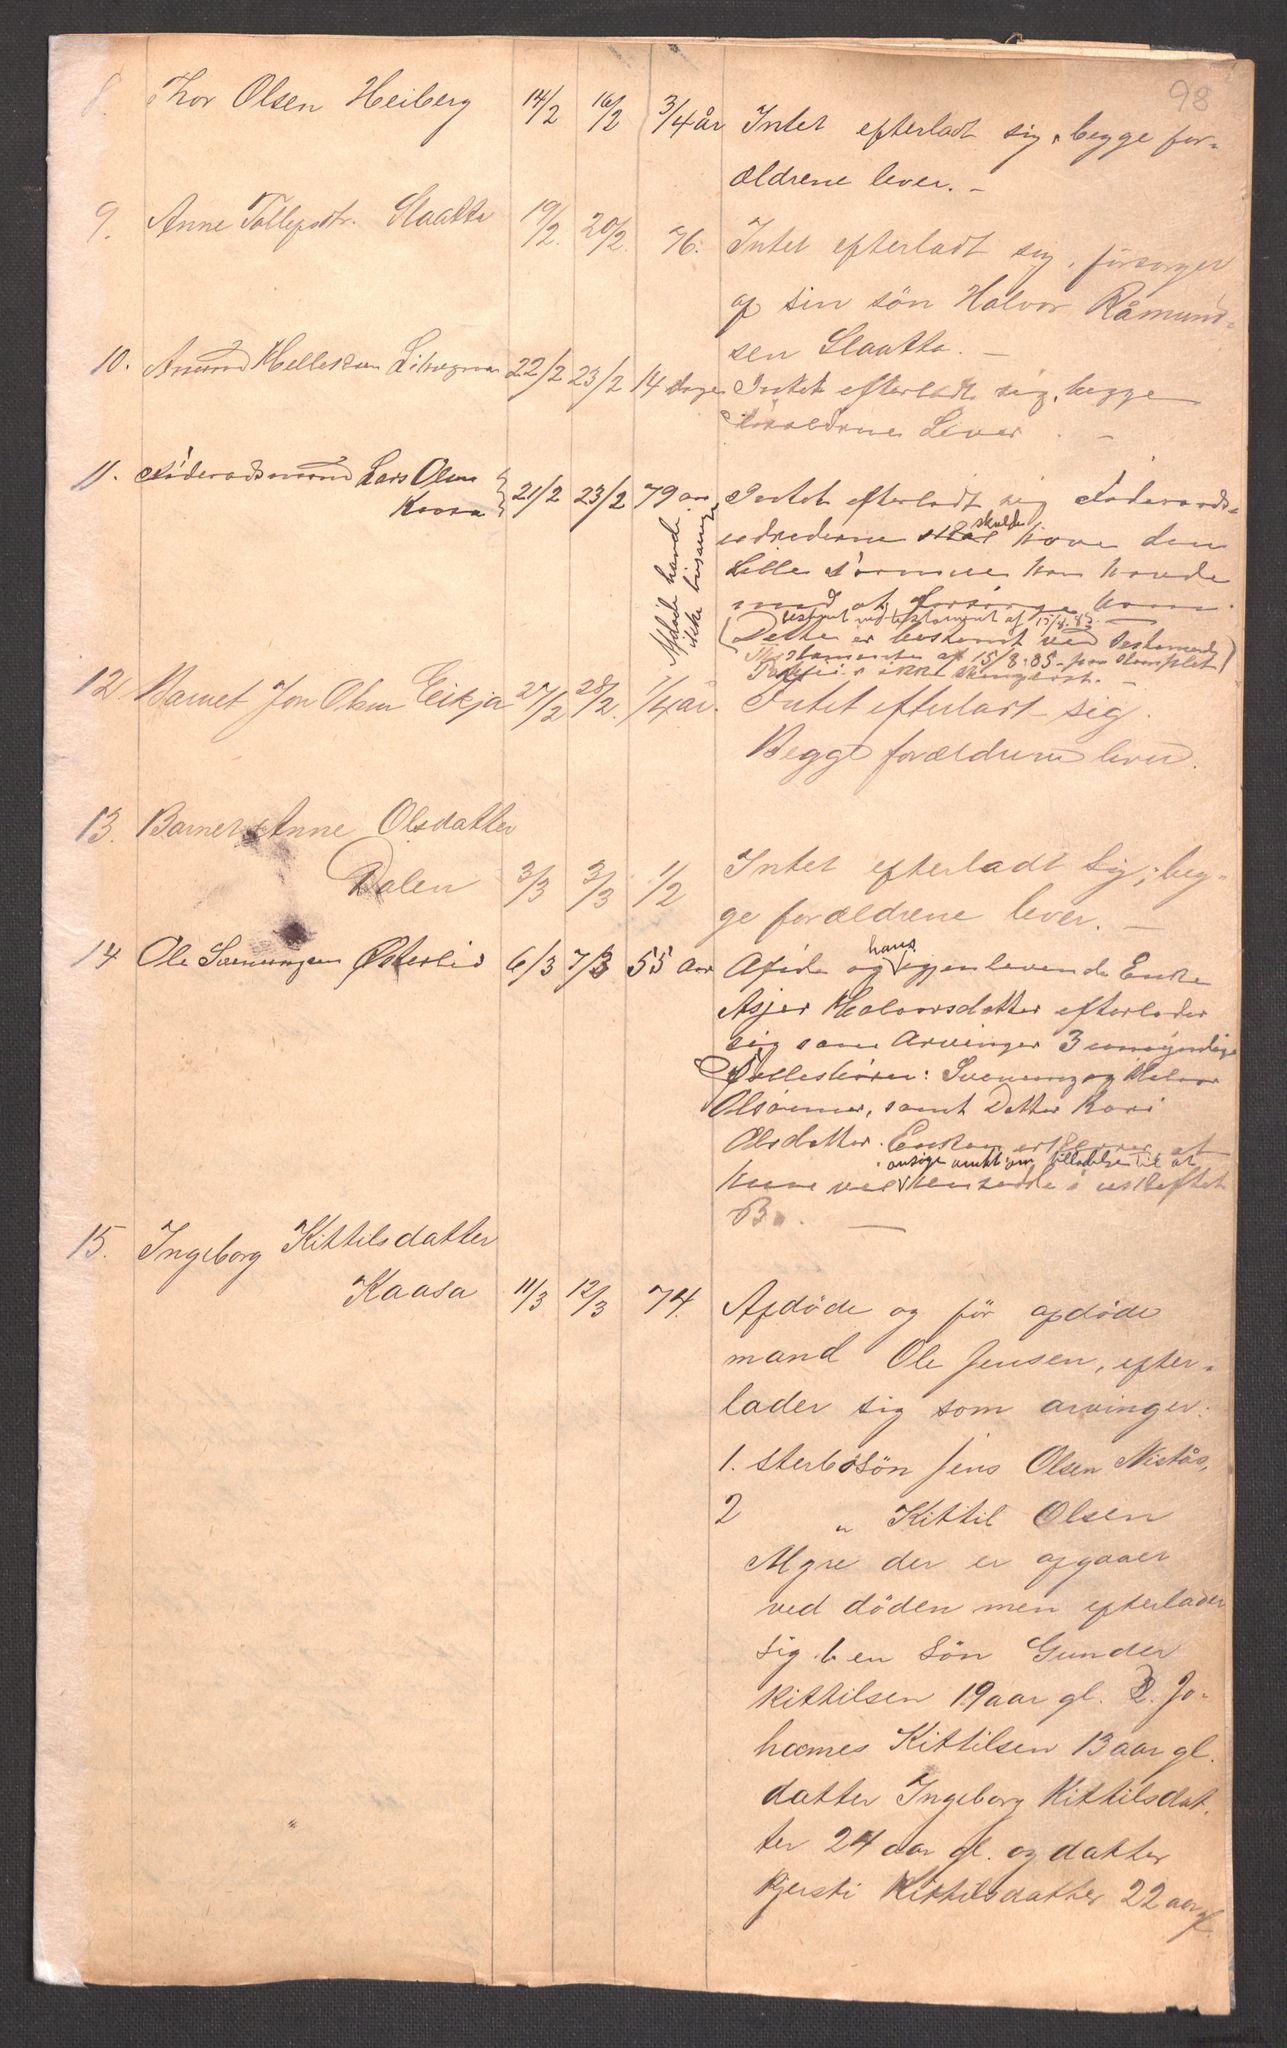 98
8. Thor Olsen Heiberg 14/2 16/2 3/4 år Intet efterladt sig, begge for-
ældrene lever. –
9. Anne Tollefsdtr. Slaatta 19/2. 20/2. 76. Intet efterladt sig, forsørget
af sin søn Halvor Råmund-
sen Slaatta. –
10. Amund Helleksen 22/2 23/2 14 dage Intet efterladt sig, begge
Forældrene Lever. –
11. Føderaadsmand Lars Olsen
Kaasa 21/2 23/2 79 aar Intet efterladt sig Føderaads-
skulde have den
Lille han havde
med at forsørge ham.
Afdøde havde
ikke
testament af 15/8.85.
Dette er bestemt ved Testament
af 15/8.85 –
er ikke
12. Barnet Jon Olsen Eikja 27/2 28/2. 1/4 år. Intet efterladt sig.
Begge forældrene lever.
13. Barnet Anne Olsdatter
Dalen 3/3 3/3 1/2 Intet efterladt sig, beg-
ge forældrene lever. –
14 Ole Svenungsen Østerlid 6/3 7/3 55 Aar Afdøde og hans gjenlevende Enke
Asjer Halvorsdatter efterlader
sig som Arvinger 3 umyndige
Fællesbørn: Svenung og Halvor
Olsønner, samt Datter Kari
Olsdatter. Enken erklærer at
ansøge amtet om tilladelse til at
hun vil hensidde i uskiftet
Bo. –
15. Ingeborg Kittilsdatter
Kaasa 11/3 12/3 74. Afdøde og før afdøde
mand Ole Jensen, efter-
lader sig som arvinger:
1. sterbøsøn Jens Olsen Nistås,
2 " Kittil Olsen
Myre der er afgaaet
ved døden men efterlader
sig 1. en søn Gunder
Kittilsen 19 aar gl. 2. Jo-
hannes Kittilsen 13 aar gl.
datter Ingeborg Kittilsdat-
ter 24 aar gl. og datter
Kjersti Kittilsdatter 22 aar gl